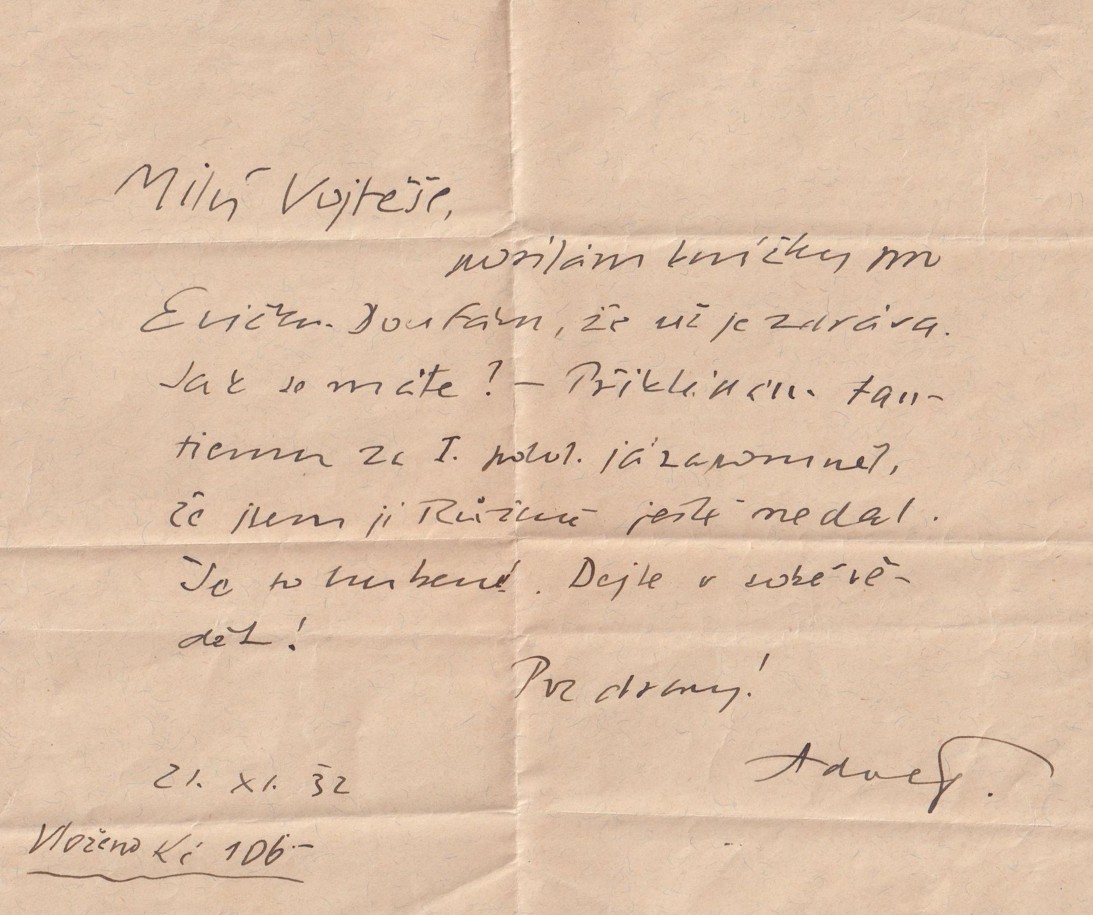 Milý Vojtěše,
posílám knížky pro
Evičku. Doufám, že už je zdráva.
Jak se máte? – Přikládám tan-
tiemu za I. polol. já zapomněl,
že jsem ji Růženě ještě nedal.
Je to hubené. Dejte o sobě vě-
dět!
Pozdravuj!
21. XI. 32
Vloženo Kč 106.–